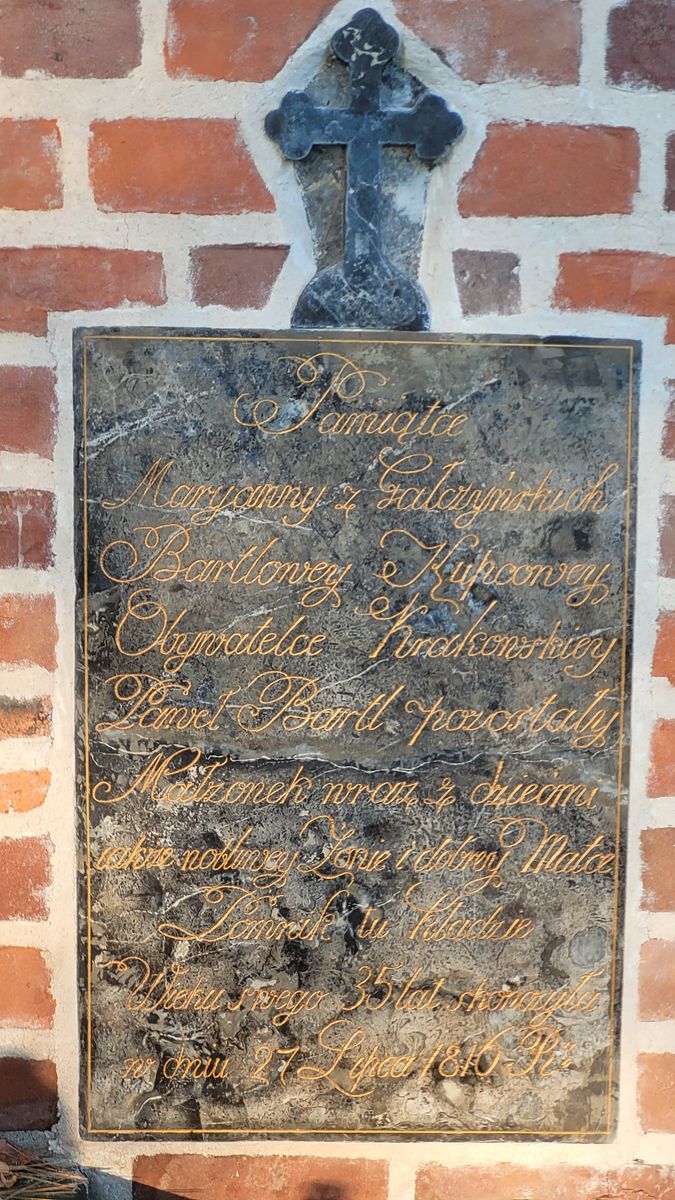 Pamiątce
Maryanny z Gałczyńskich
Bartlowey Kupcowey
Obywatelce Krakowskiey
Paweł Bartl pozostały
Małżonek wraz z dziećmi
także nobliwey Żonie i dobrey Matce
Pomnik tu kładzie
Wieku swego 35 lat skończyła
w dniu 27 Lipca 1816 R: